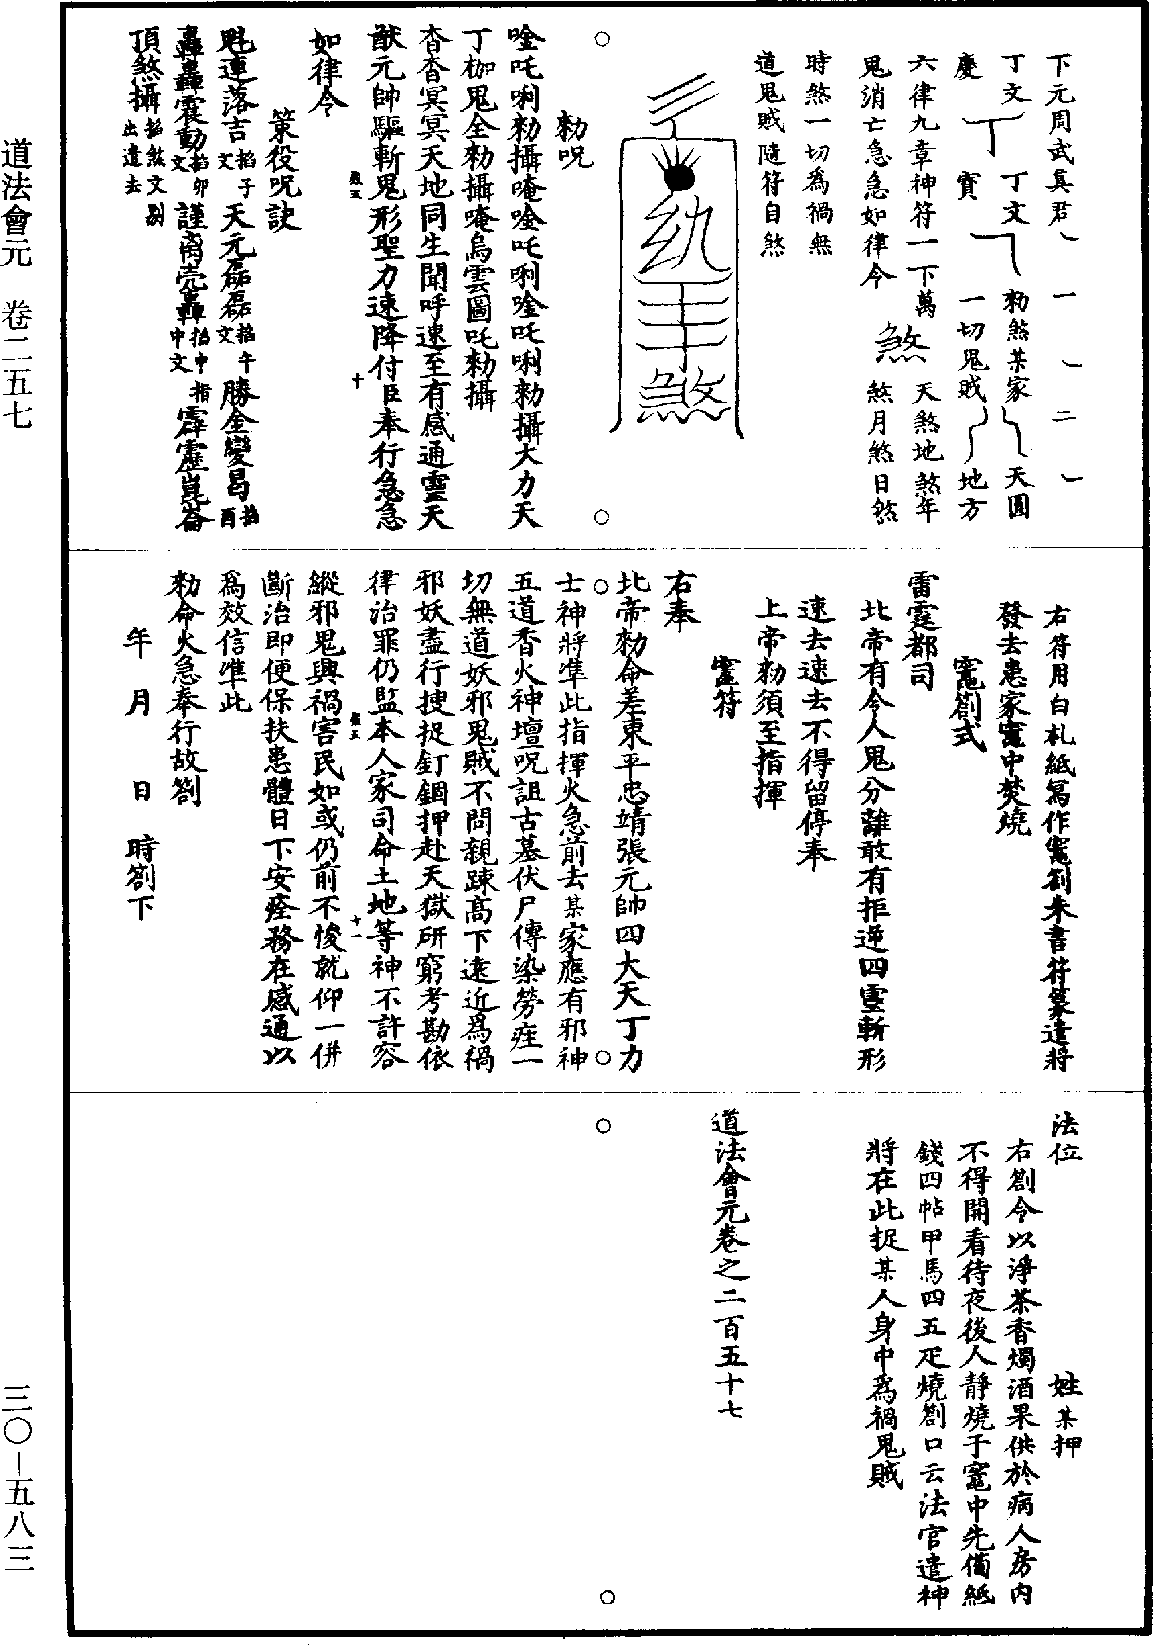 道法會元　卷二五七
三〇—五八三
下元周武真君
一
二
丁文　丁文　勑煞某家　天圓
慶　寶　一切鬼賊　地方
六律九章神符一下萬　天煞地煞年
鬼消亡急急如律令　煞　煞月煞日煞
時煞一切為禍無
道鬼賊隨符自煞
煞
勑呪
唫吒唎勑攝唵唫吒唎唫吒唎勑攝大力天
丁枷鬼全勑攝唵烏雲圖吒勑攝
杳杳冥冥天地同生聞呼速至有感通靈天
猷元帥驅斬鬼形聖力速降付臣奉行急急
如律令
策役呪訣
魁連落吉掐子文天元磊磊掐午文勝全變曷掐酉
轟轟震動掐卯文謹裔壳轟掐中指中文霹靂崑崙
頂煞攝掐煞文剔出遣去
右符用白札紙寫作竈劄朱書符篆遣將
發去患家竈中焚燒
竈劄式
雷霆都司
北帝有令人鬼分離敢有拒逆四靈斬形
速去速去不得留停奉
上帝勑須至指揮
竈符
右奉
北帝勑命差東平忠靖張元帥四大天丁力
士神將準此指揮火急前去某家應有邪神
五道香火神壇呪詛古墓伏尸傳染勞疰一
切無道妖邪鬼賊不問親踈高下遠近為禍
邪妖盡行搜捉釘錮押赴天獄研窮考勘依
律治罪仍監本人家司命土地等神不許容
縱邪鬼興禍害民如或仍前不悛就仰一併
斷治即便保扶患體日下安痊務在感通以
為效信準此
勑命火急奉行故劄
年　月　日　時劄下
法位　姓某押
右劄令以淨茶香燭酒果供於病人房内
不得開看待夜後人靜燒于竈中先備紙
錢四帖甲馬四五疋燒劄口云法官遣神
將在此捉某人身中為禍鬼賊
道法會元卷之二百五十七